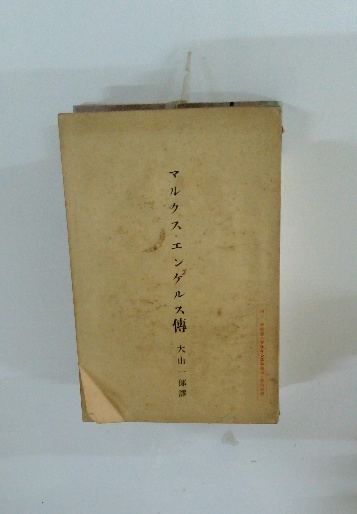 マルクス・エンゲルス傳 大山一郎譯